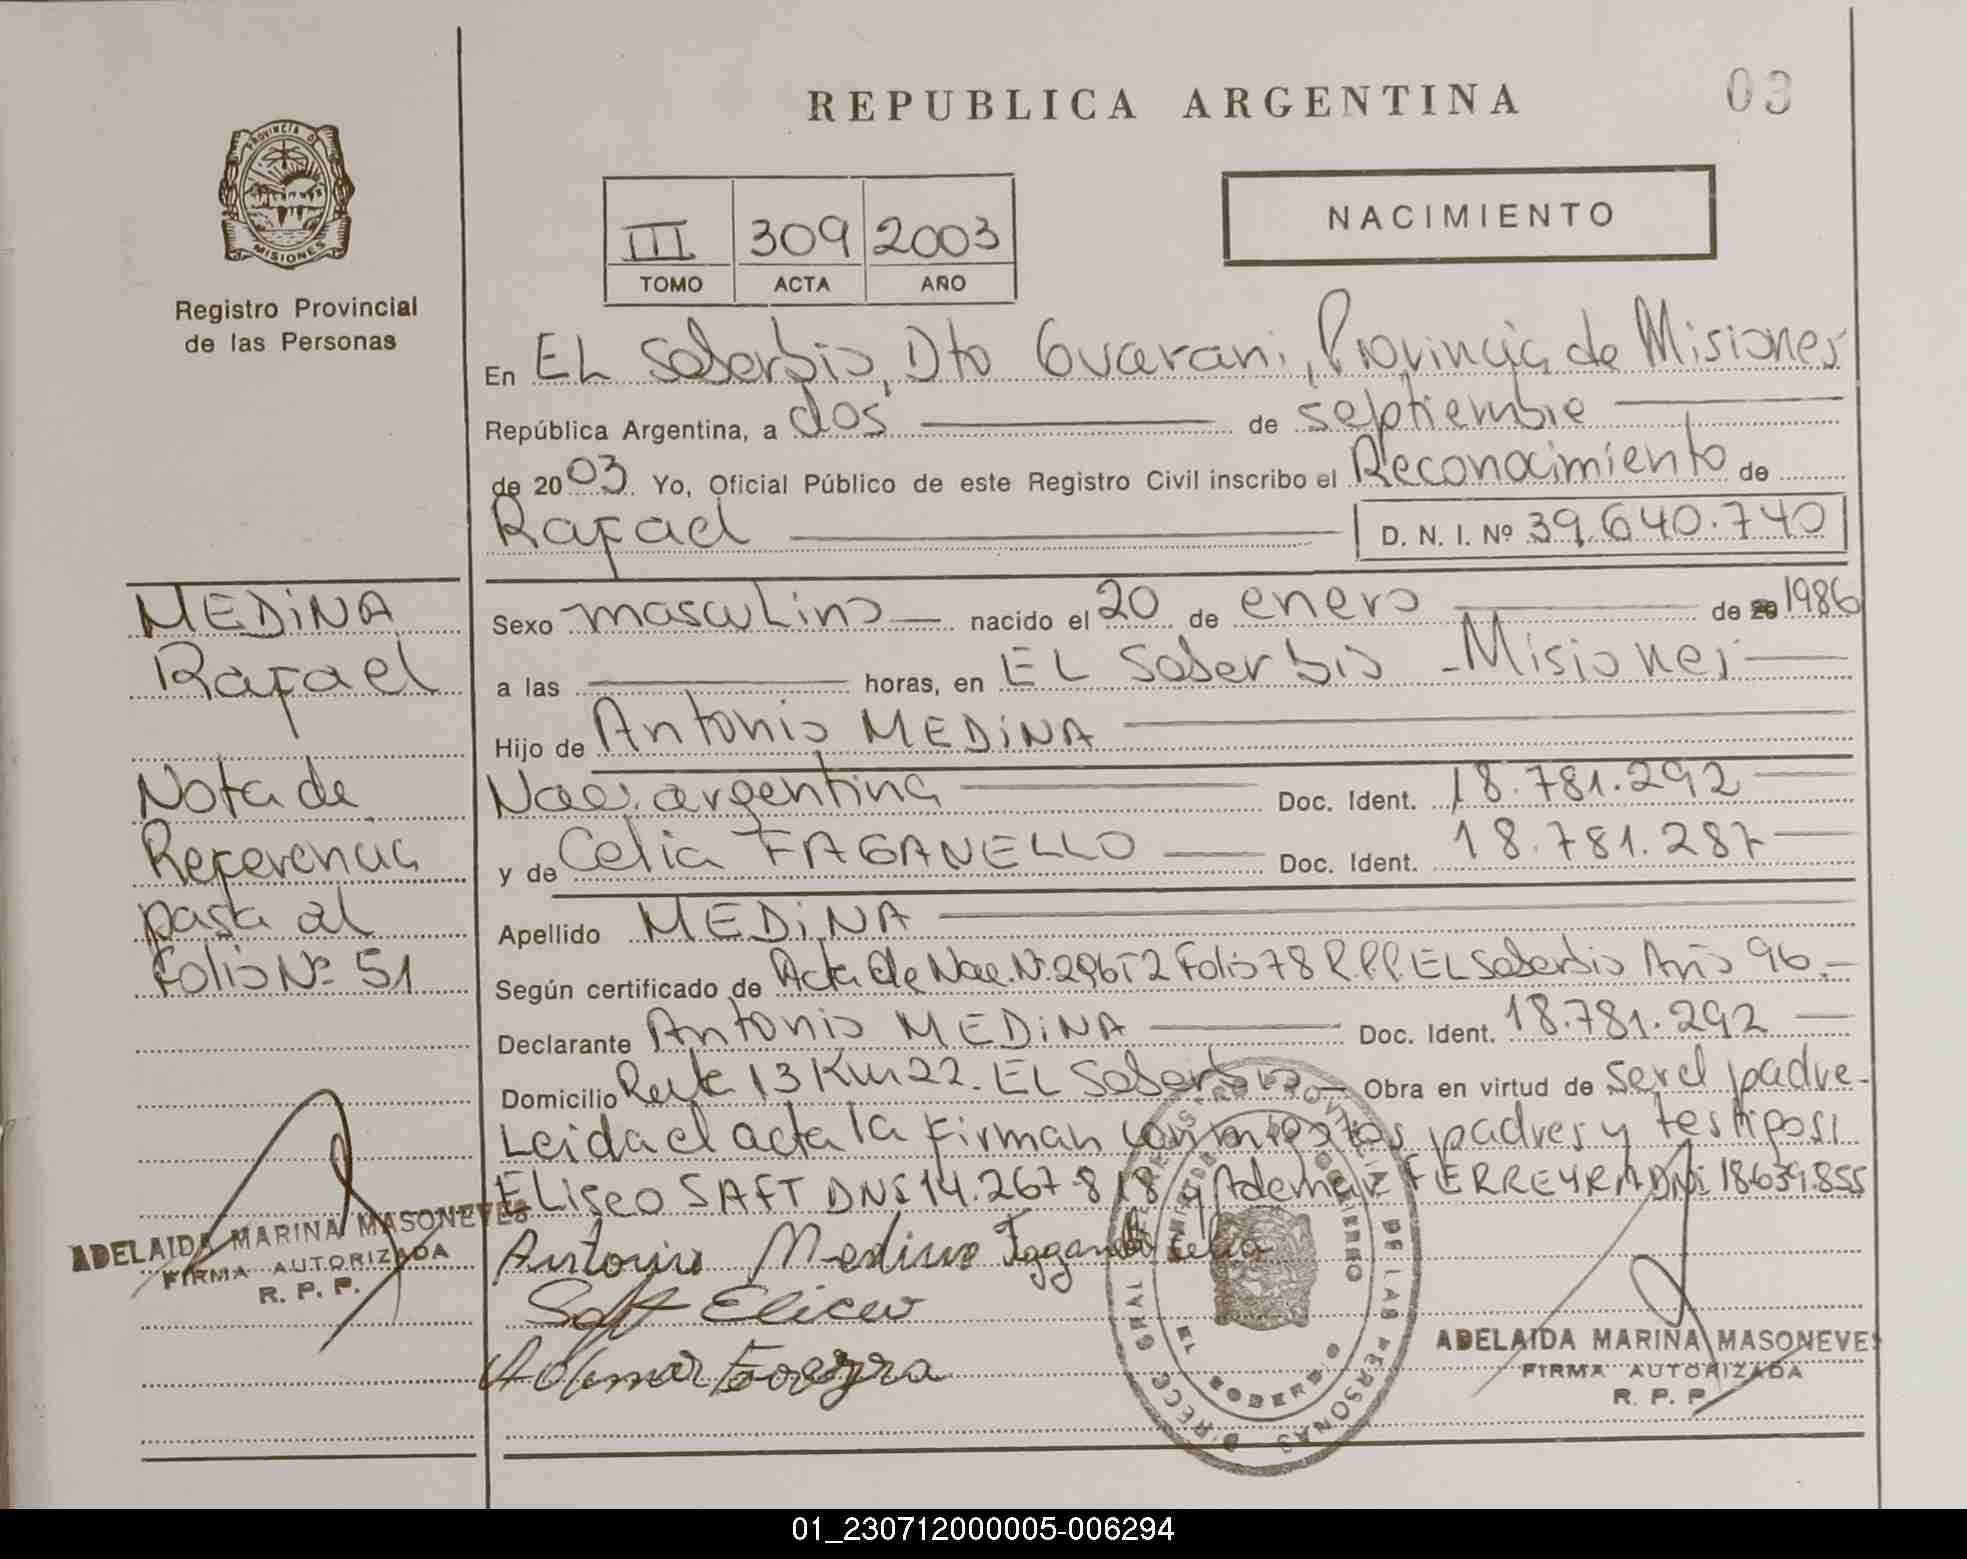 REPUBLICA ARGENTINA
03
PROVINCIA DE
MISIONES
Registro Provincial
de las Personas
III 309 2003
TOMO ACTA AÑO
NACIMIENTO
En EL Soberbio, Dto Guarani, Provincia de Misiones
República Argentina, a dos de septiembre
de 2003 Yo, Oficial Público de este Registro Civil inscribo el Reconocimiento de
Rafael D. N. I. Nº 39.640.740
MEDiNA
Rafael
Nota de
Referencia
pasa al
Folio Nº 51
Sexo masculino nacido el 20 de enero de 1986
a las horas, en EL Soberbio - Misiones
Hijo de Antonio MEDiNA
Nac. argentina Doc. Ident. 18.781.292
y de Celia FAGANELLO Doc. Ident. 18.781.287
Apellido MEDiNA
Según certificado de Acta de Nac. Nº 296 T2 Folio 78 R.P.P. EL Soberbio Año 96.
Declarante Antonio MEDiNA Doc. Ident. 18.781.292
Domicilio Ruta 13 Km 22. EL Soberbio Obra en virtud de ser el padre.
Leida el acta la firman conmigo los padres y testigos:
ELiseo SAFT DNI 14.267.818 y Ademar FERREYRA DNi 18.639.855
Antonio Medina Faganello Celia
Saft Eliceo
Ademar Ferreyra
ADELAIDA MARINA MASONEVES
FIRMA AUTORIZADA
R. P. P.
ADELAIDA MARINA MASONEVES
FIRMA AUTORIZADA
R. P. P
DE LAS PERSONAS
EL SOBERBIO
01_230712000005-006294